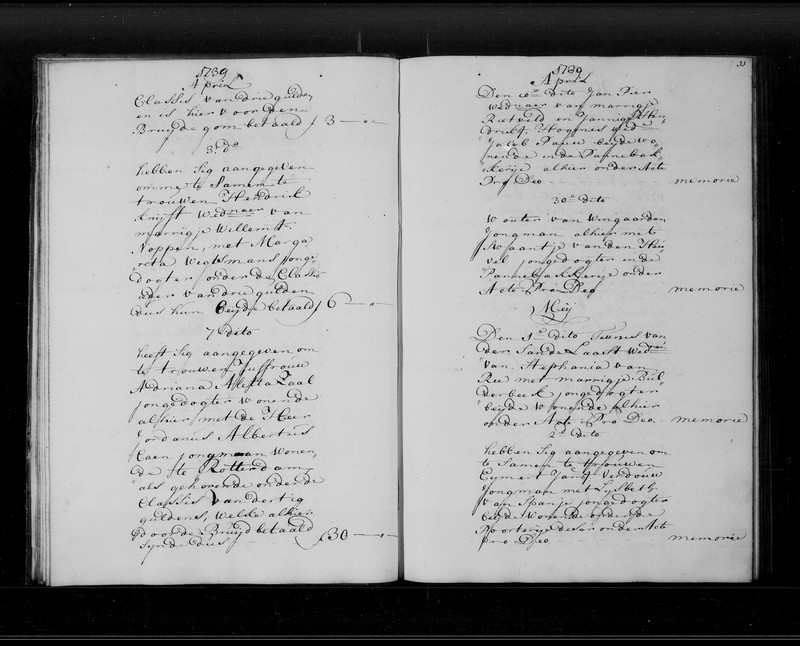 1739
April
Classis van drie gulden
en is hier voor den
Bruijdegom betaald f 3 — „ —
3 do
hebben sig aangegeven
omme te Samen te
trouwen Hendrik
Knijff Wednaer van
marrigje Willemt
Noppen, met Marga
reta Westmans jonge
dogter onder de Classis
ider van drie gulden
dus hier beijde betaald f 6 — „ —
7 dito
heeft Sig aangegeven om
te trouwen Juffrouw
Adriana Aletta Zaal
jongedogter wonende
alhier met de Heer
Jordanus Albertus
Caen jongman Wonen
de te Rotterdam,
als gehorende onder de
Classis van dertig
guldens, welke alhier
door de Bruijd betaald
Synde dus f 30 — „ —
33
1739
April
Den dito Jan Pier
Wednaer van marrigje
Rietveld en Jannigje Hen
driks Wede
Jacob beijde wo
nende in de Pannebak
kerije alhier onder Acte
Pro Deo memorie
30e dito
Wouter van Wingaarden
Jongman alhier met
Swaantje van den Heu
vel jongedogter in de
Pannebakkerije onder
Acte Pro Deo memorie
Meij
Den 1e dito Teunis van
der Sande Laast Wednr
van Stephania van
Ree met marrigje Bul
derbeek jongedogter
beijde wonende alhier
onder Acte Pro Deo memorie
2e dito
hebben Sig aangegeven om
te Samen te trouwen
Cijmert Jans Verdouw
Jongman met Lijsbeth
van Spanje jongedogter
beijde wonende onder de
Poorterije deser onder Acte
pro Deo memorie